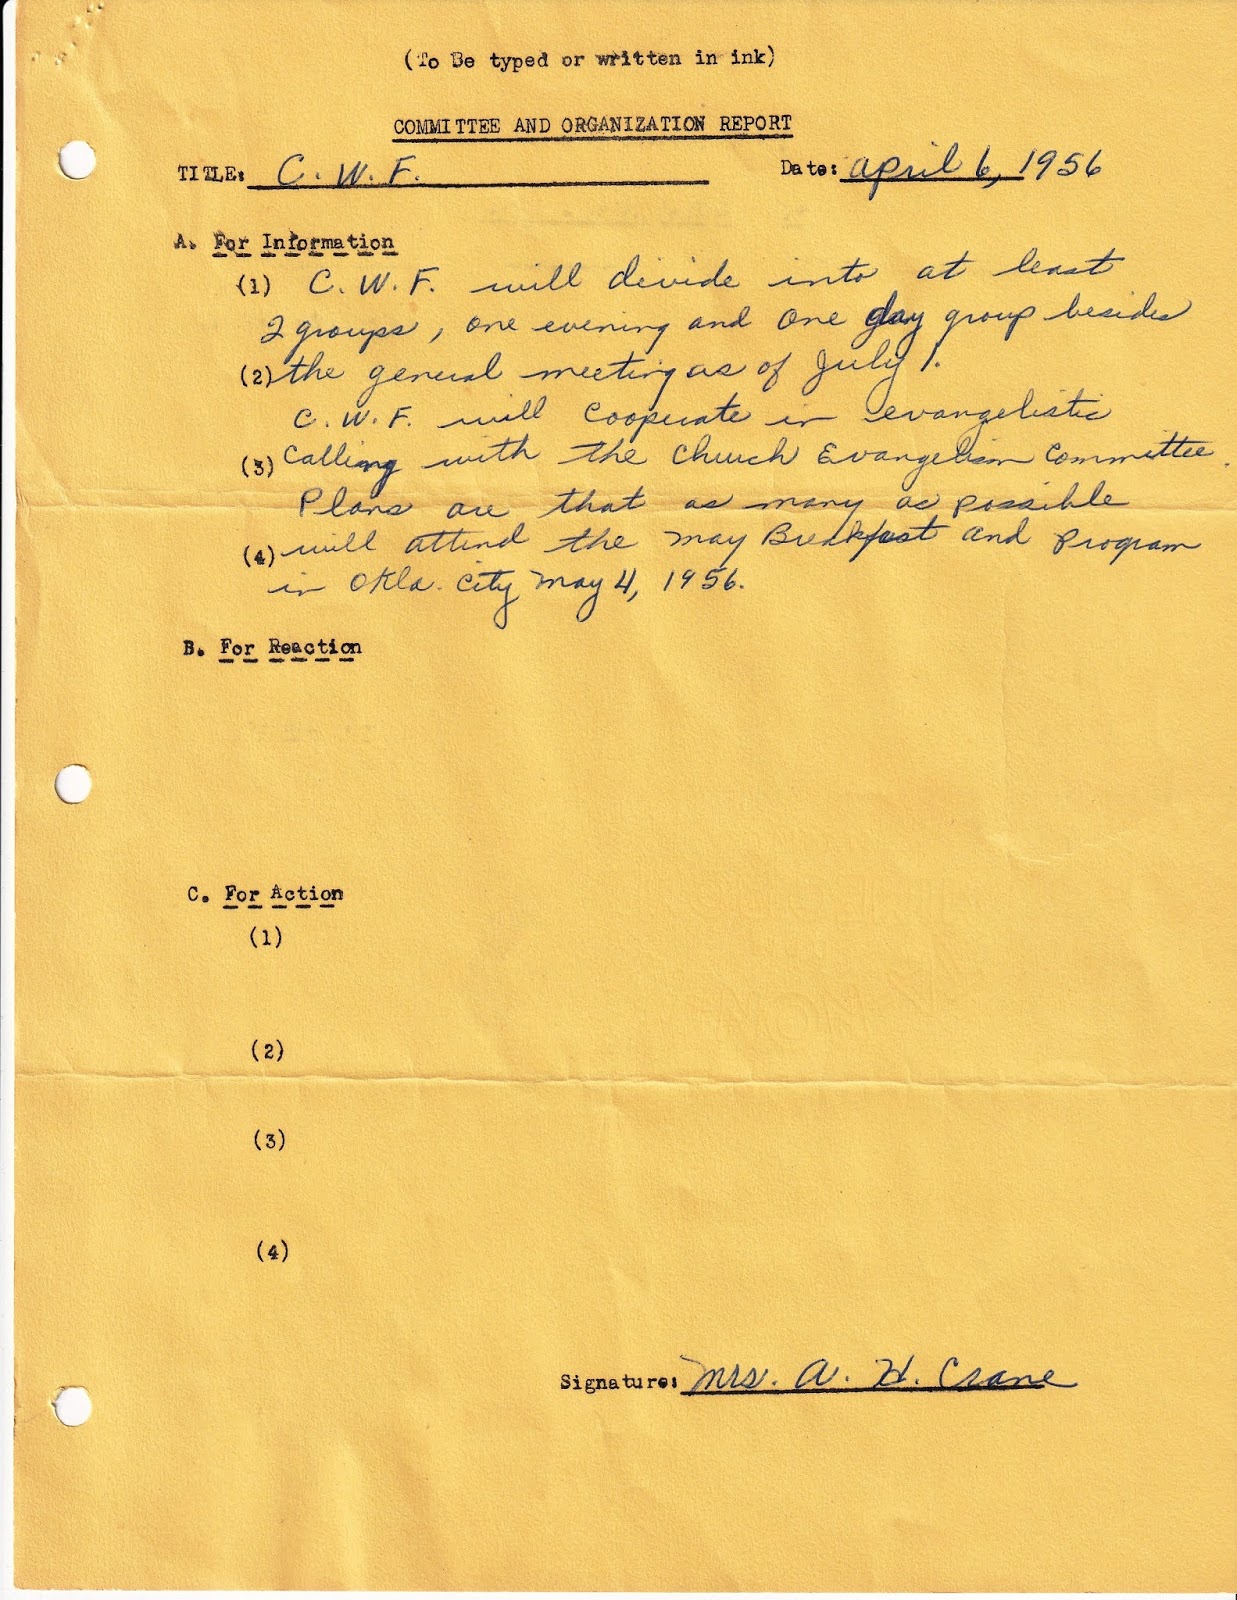 (To Be typed or written in ink)
COMMITTEE AND ORGANIZATION REPORT
TITLE: C. W. F. Date: April 6, 1956
A. For Information
(1) C. W. F. will divide into at least
2 groups, one evening and one day group besides
(2) the general meeting as of July 1.
C. W. F. will cooperate in evangelistic
(3) calling with the Church Evangelism Committee.
Plans are that as many as possible
(4) will attend the May Breakfast and program
in Okla. City May 4, 1956.
B. For Reaction
C. For Action
(1)
(2)
(3)
(4)
Signature: Mrs. A. H. Crane